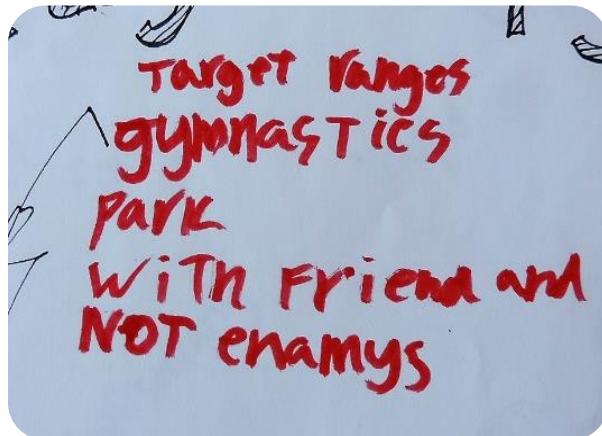 Target ranges
gymnastics
park
with Friend and
NOT enamys